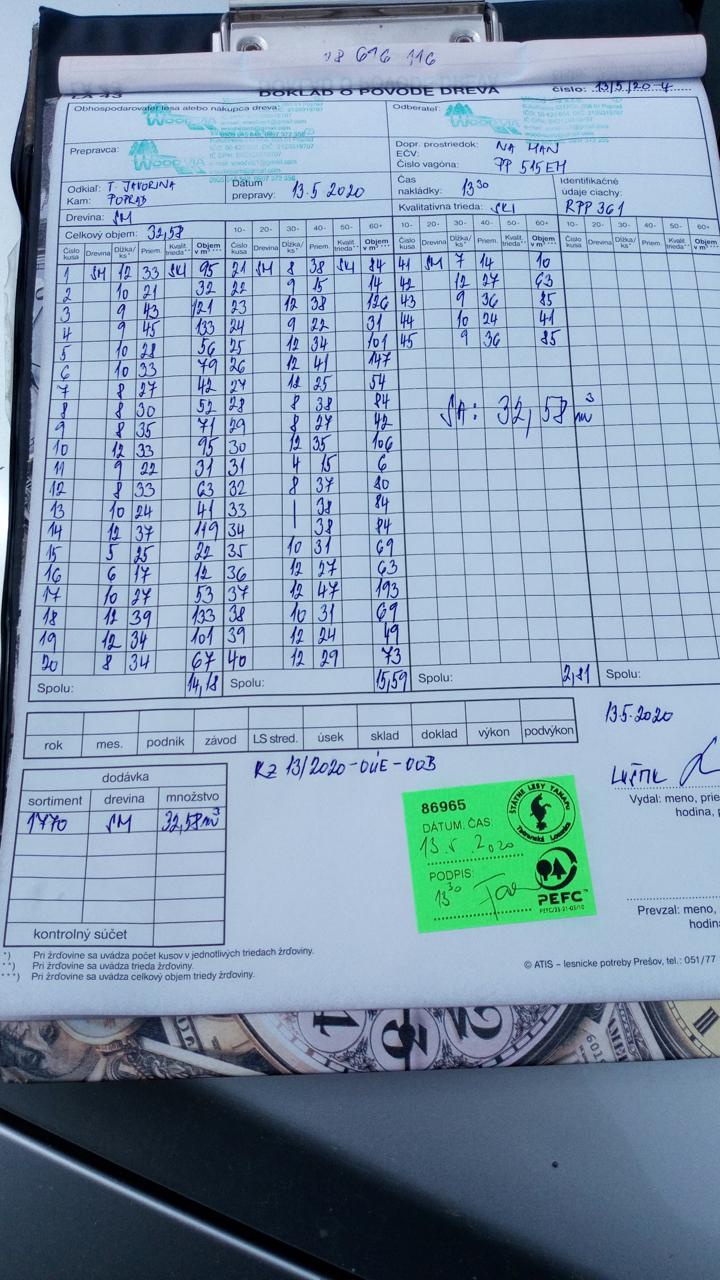 78 616 116
DOKLAD O PÔVODE DREVA
číslo: 13/5/20
Obhospodarovateľ lesa alebo nákupca dreva:
Odberateľ:
WOODVIA
WOODVIA
Prepravca:
WOODVIA
Dopr. prostriedok: NA MAN
EČV:
Číslo vagóna: PP 515EH
Odkiaľ: T. JAVORINA
Kam: POPRAD
Dátum prepravy: 13.5 2020
Čas nakládky: 13 30
Identifikačné údaje ciachy:
RPP 361
Drevina: SM
Kvalitatívna trieda:
Celkový objem: 32,58
10- 20- 30- 40- 50- 60+ 10- 20- 30- 40- 50- 60+
Číslo kusa Drevina Dĺžka/ks* Priem. Kvalit. trieda** Objem v m³ *** Číslo kusa Drevina Dĺžka/ks* Priem. Kvalit. trieda** Objem v m³ *** Číslo kusa Drevina Dĺžka/ks* Priem. Kvalit. trieda** Objem v m³ *** Číslo kusa Drevina Dĺžka/ks* Priem.
1 SM 12 33 95 21 SM 8 38 84 41 SM 7 14 10
2 10 21 32 22 9 15 14 42 12 27 63
3 9 43 121 23 12 38 126 43 9 36 85
4 9 45 133 24 9 22 31 44 10 24 41
5 10 28 56 25 12 34 101 45 9 36 85
6 10 33 79 26 12 41 147
7 8 27 42 27 12 25 54
8 8 30 52 28 8 38 84
9 8 35 71 29 8 27 42
SA: 32,58 m³
10 12 33 95 30 12 35 106
11 9 22 31 31 4 15 6
12 8 33 63 32 8 37 80
13 10 24 41 33 | 38 84
14 12 37 119 34 38 84
15 5 25 22 35 10 31 69
16 6 17 12 36 12 27 63
17 10 27 53 37 12 47 193
18 12 39 133 38 10 31 69
19 12 34 101 39 12 24 49
20 8 34 67 40 12 29 73
Spolu: 14,18 Spolu: 15,59 Spolu: 2,81 Spolu:
13.5.2020
rok mes. podnik závod LS stred. úsek sklad doklad výkon podvýkon
dodávka
sortiment drevina množstvo
1770 SM 32,58m³
kontrolný súčet
86965
DÁTUM, ČAS:
13.5.2020
PODPIS:
13 30
ŠTÁTNE LESY TANAPu
Tatranská Lomnica
PEFC™
Vydal: meno,
hodina,
Prevzal: meno,
*) Pri žrďovine sa uvádza počet kusov v jednotlivých triedach žrďoviny.
**) Pri žrďovine sa uvádza trieda žrďoviny.
***) Pri žrďovine sa uvádza celkový objem triedy žrďoviny.
© ATIS – lesnícke potreby Prešov, tel.: 051/77